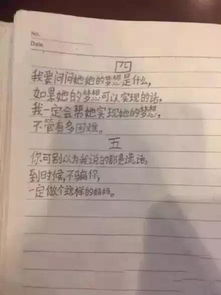 No.
Date
四
我要问问她她的梦想是什么,
如果她的梦想可以实现的话,
我一定会帮她实现她的梦想,
不管有多困难。
五
你可别以为我说的都是谎话,
到时候,不骗你,
一定做个这样的妈妈。